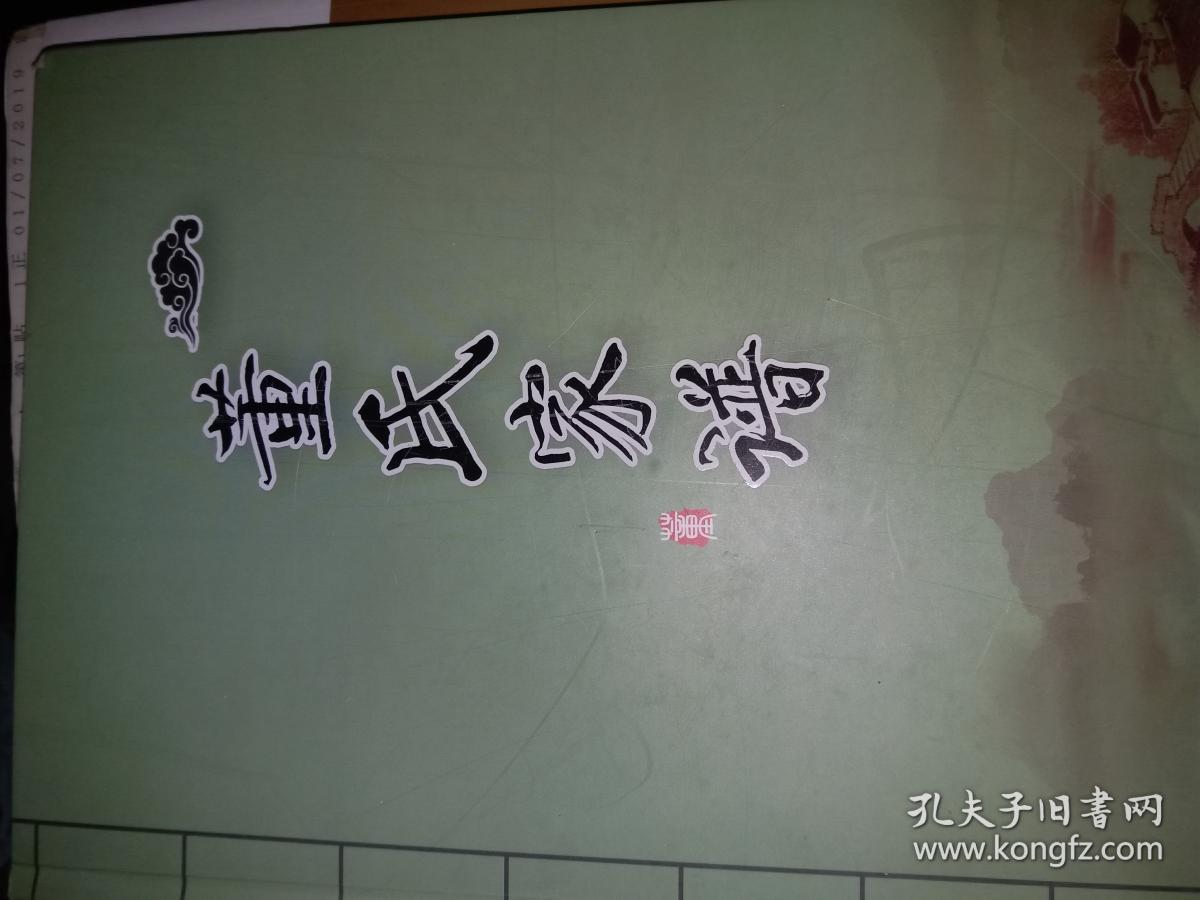 董氏家谱
01/07/2019
孔夫子旧書网
www.kongfz.com